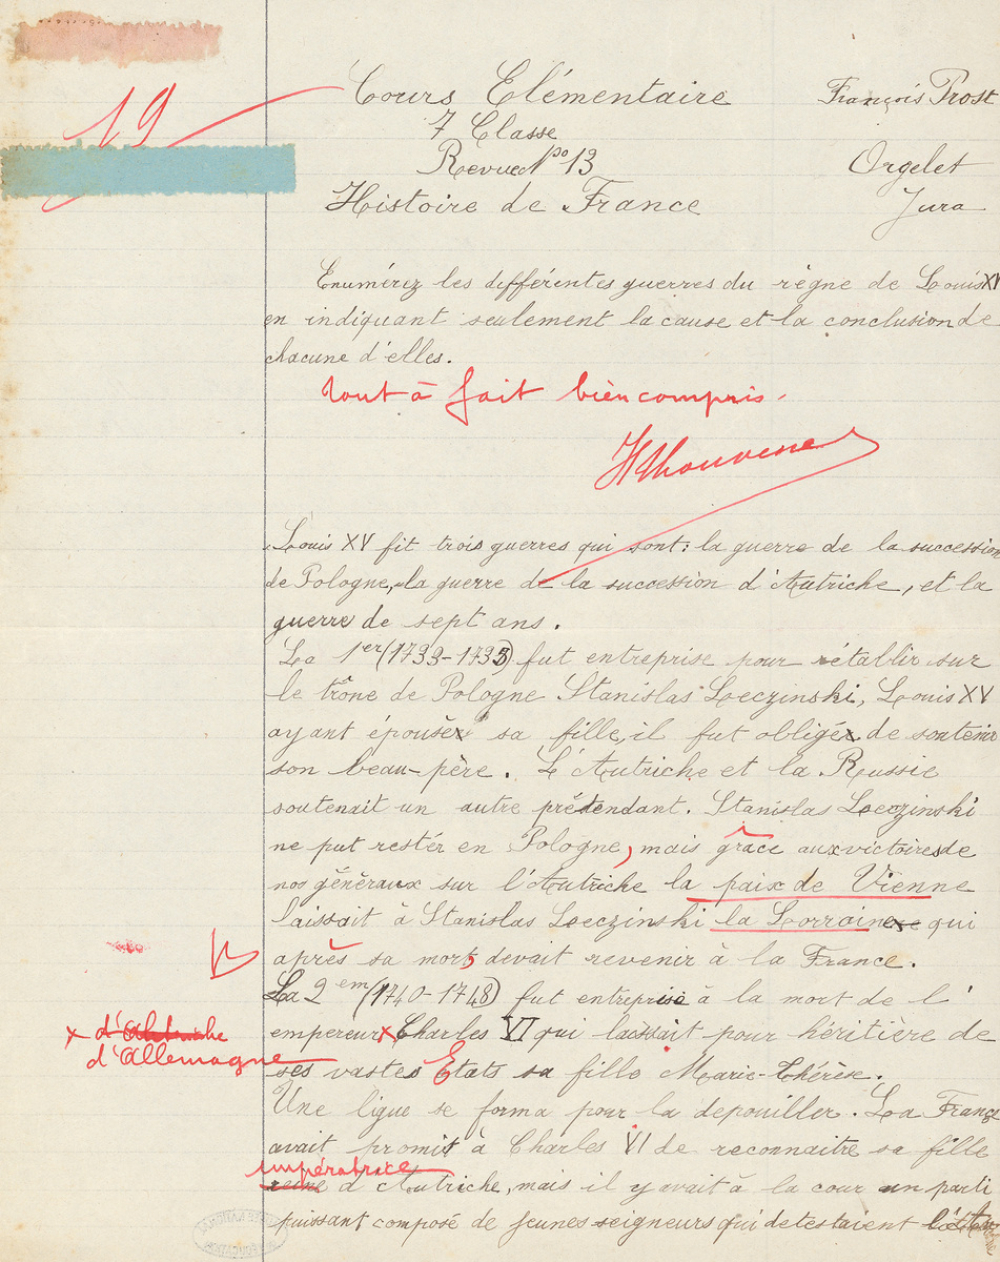 19
Cours Elémentaire François Prost
7 Classe
Revue No 13 Orgelet
Histoire de France Jura
Enumérez les différentes guerres du règne de Louis XV
en indiquant seulement la cause et la conclusion de
chacune d'elles.
Tout à fait bien compris.
Louis XV fit trois guerres qui sont : la guerre de la succession
de Pologne, la guerre de la succession d'Autriche, et la
guerre de sept ans.
La 1er (1733-1735) fut entreprise pour rétablir sur
le trône de Pologne Stanislas Leczinski, Louis XV
ayant épousé sa fille, il fut obligé de soutenir
son beau-père. L'Autriche et la Russie
soutenait un autre prétendant. Stanislas Leczinski
ne put restér en Pologne, mais grâce aux victoires de
nos généraux sur l'Autriche la paix de Vienne
laissait à Stanislas Leczinski la Lorraine qui
après sa mort, devait revenir à la France.
La 2em (1740-1748) fut entreprise à la mort de l'
empereur x Charles VI qui laissait pour héritière de
x d'Allemagne
ses vastes Etats sa fille Marie-Thérèse.
Une ligue se forma pour la depouiller. La France
avait promit à Charles VI de reconnaitre sa fille
impératrice
reine d'Autriche, mais il y avait à la cour un parti
puissant composé de jeunes seigneurs qui detestaient